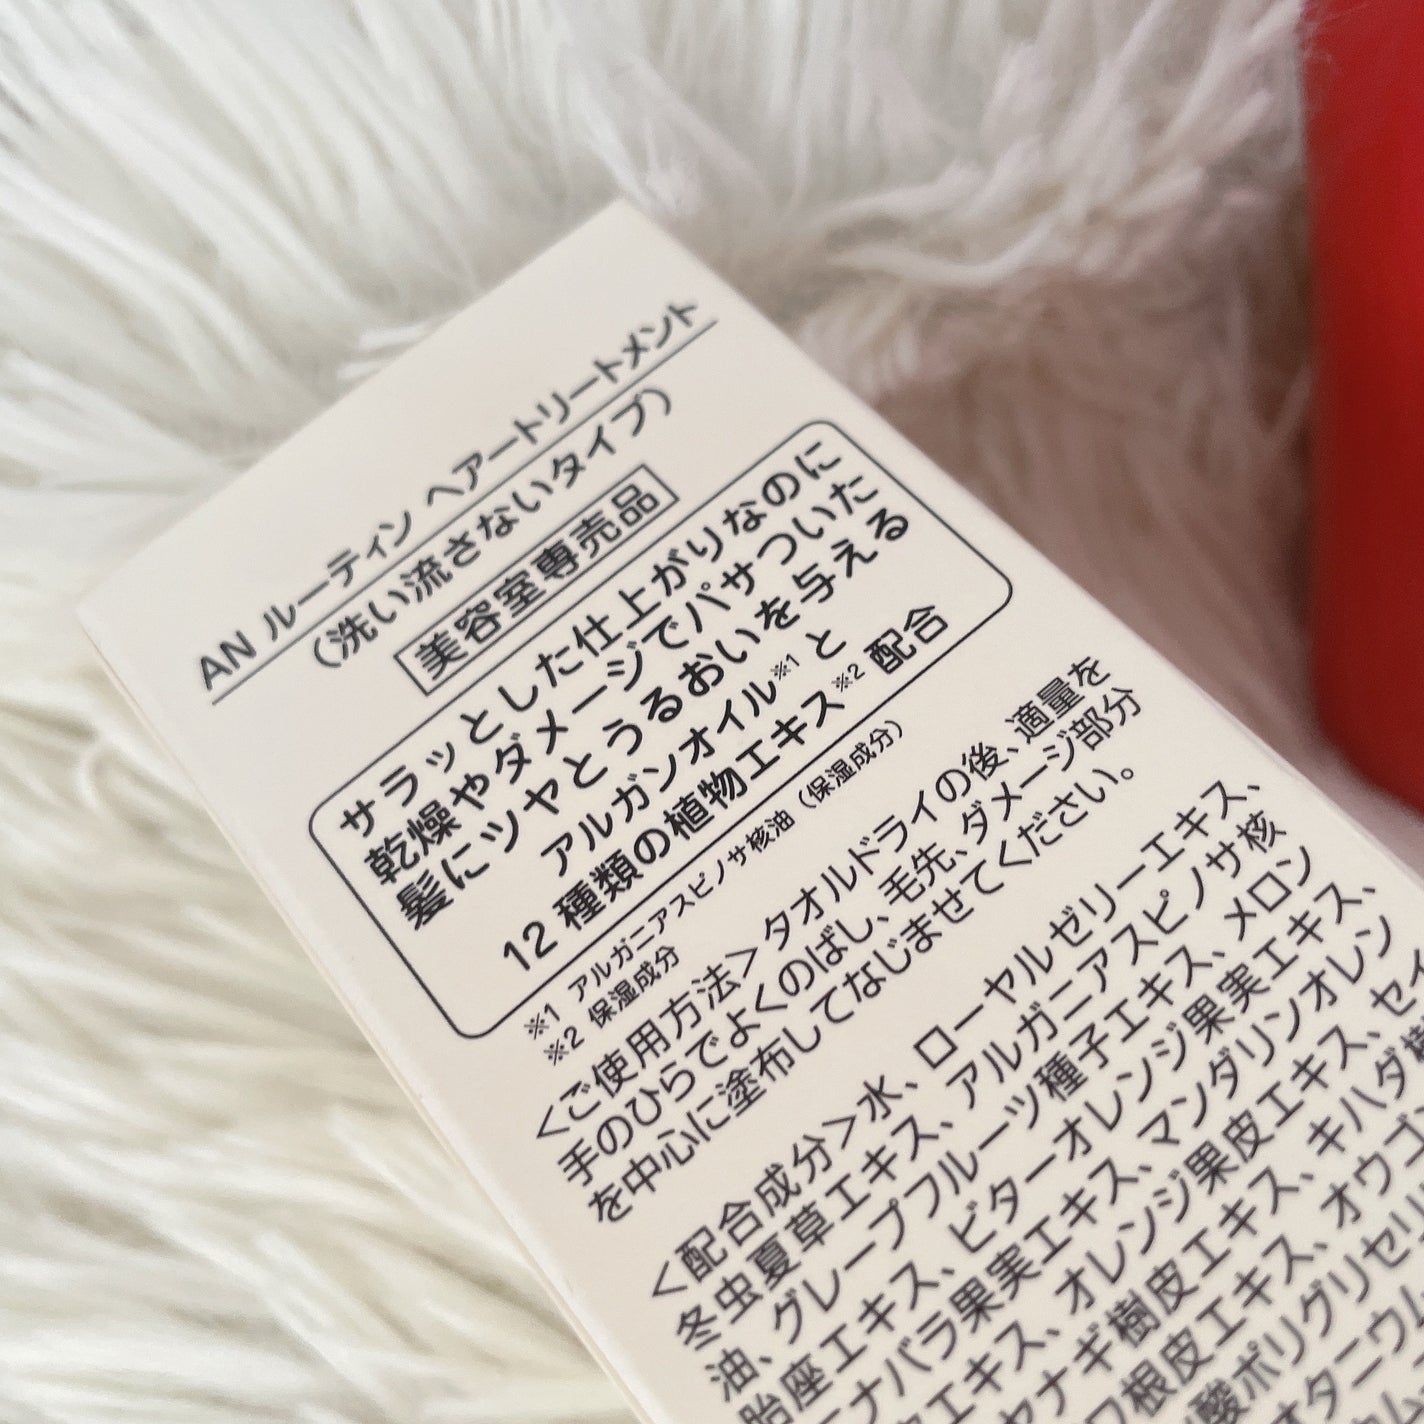 AN ルーティン ヘアートリートメント
（洗い流さないタイプ）
美容室専売品
サラッとした仕上がりなのに
乾燥やダメージでパサついた
髪にツヤとうるおいを与える
アルガンオイル※1 と
12 種類の植物エキス※2 配合
※1 アルガニアスピノサ核油（保湿成分）
※2 保湿成分
＜ご使用方法＞タオルドライの後、適量を
手のひらでよくのばし、毛先、ダメージ部分
を中心に塗布してなじませてください。
＜配合成分＞水、ローヤルゼリーエキス、
冬虫夏草エキス、アルガニアスピノサ核
油、グレープフルーツ種子エキス、メロン
胎座エキス、ビターオレンジ果実エキス、
ナバラ果実エキス、マンダリンオレン
エキス、オレンジ果皮エキス、セイ
ヤナギ樹皮エキス、キハダ樹
ワ根皮エキス、オウゴ
酸ポリグリセリ
タニウム